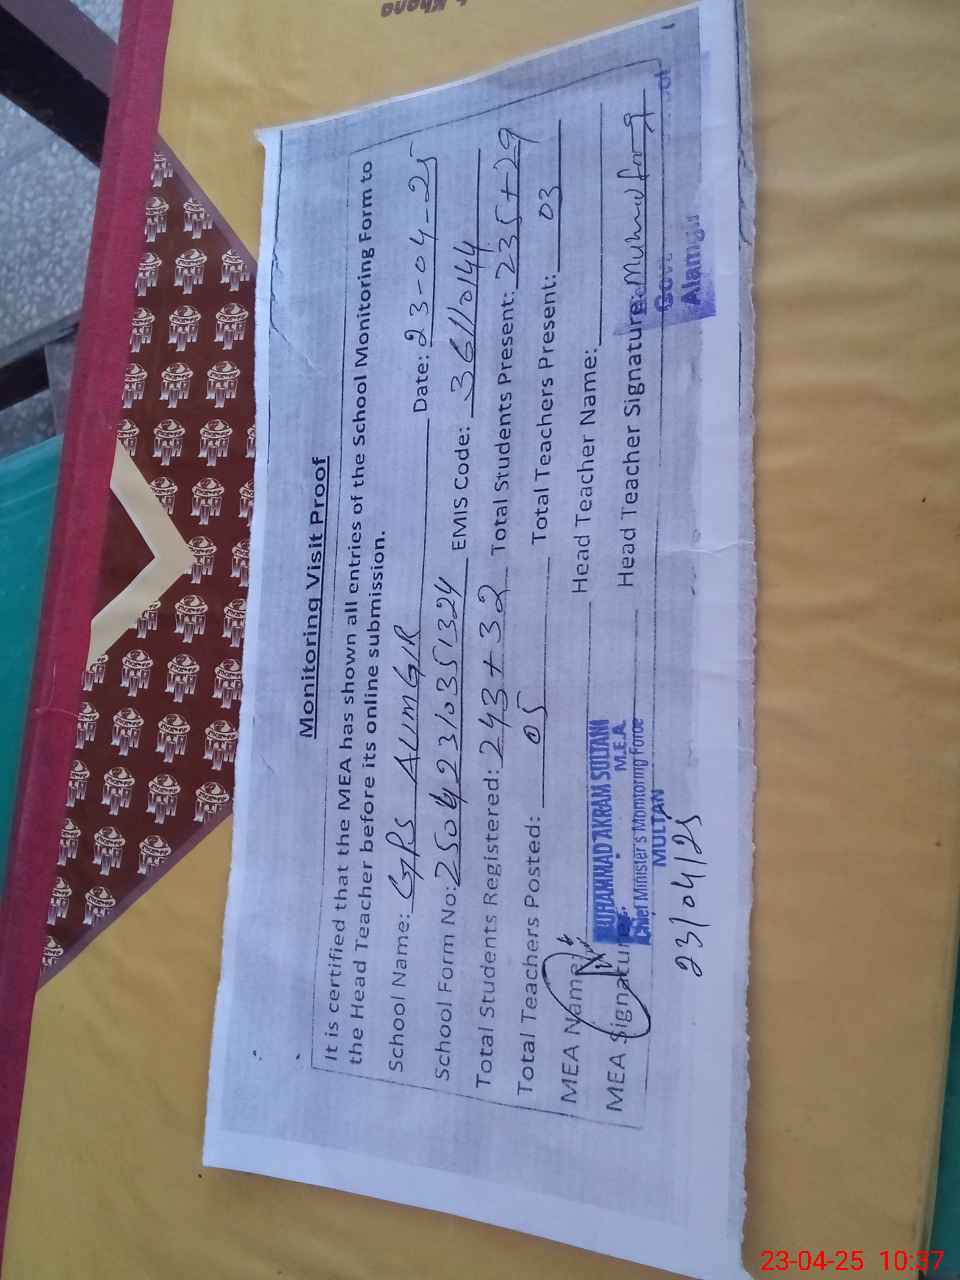 Monitoring Visit Proof
It is certified that the MEA has shown all entries of the School Monitoring Form to
the Head Teacher before its online submission.
School Name: GPS ALIMGIR Date: 23-04-25
School Form No: 25042310351324 EMIS Code: 36110144
Total Students Registered: 243+32 Total Students Present: 235+29
Total Teachers Posted: 05 Total Teachers Present: 03
MEA Name Head Teacher Name:
MUHAMMAD AKRAM SULTANI
M.E.A.
MEA Signature Head Teacher Signature:
Chief Minister's Monitoring Force
MULTAN
23/04/25
Alamgir
23-04-25 10:37